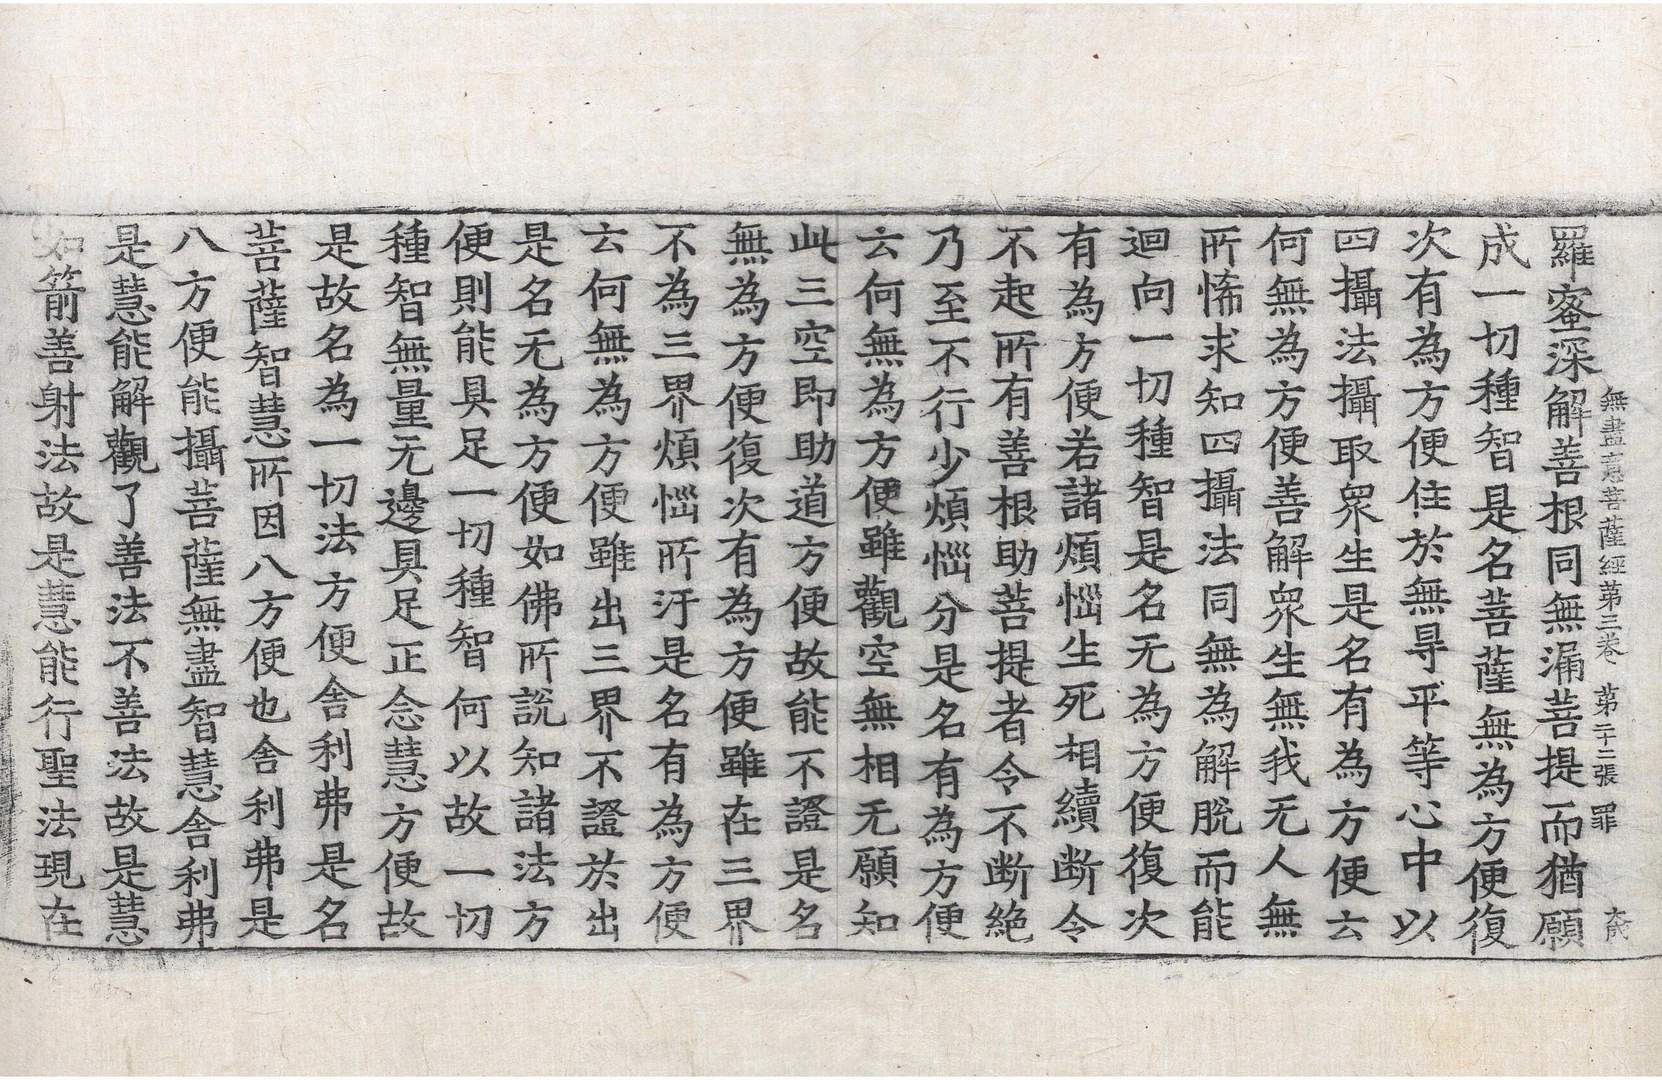 無盡意菩薩經第三卷 第二十二張 罪
羅蜜深解善根同無漏菩提而猶願
成一切種智是名菩薩無為方便復
次有為方便住於無㝵平等心中以
四攝法攝取衆生是名有為方便云
何無為方便善解衆生無我无人無
所悕求知四攝法同無為解脫而能
迴向一切種智是名无為方便復次
有為方便若諸煩惱生死相續断令
不起所有善根助菩提者令不断絶
乃至不行少煩惱分是名有為方便
云何無為方便雖觀空無相无願知
此三空即助道方便故能不證是名
無為方便復次有為方便雖在三界
不為三界煩惱所汙是名有為方便
云何無為方便雖出三界不證於出
是名无為方便如佛所說知諸法方
便則能具足一切種智何以故一切
種智無量无邊具足正念慧方便故
是故名為一切法方便舎利弗是名
菩薩智慧所因八方便也舎利弗是
八方便能攝菩薩無盡智慧舎利弗
是慧能解觀了善法不善法故是慧
如箭善射法故是慧能行聖法現在